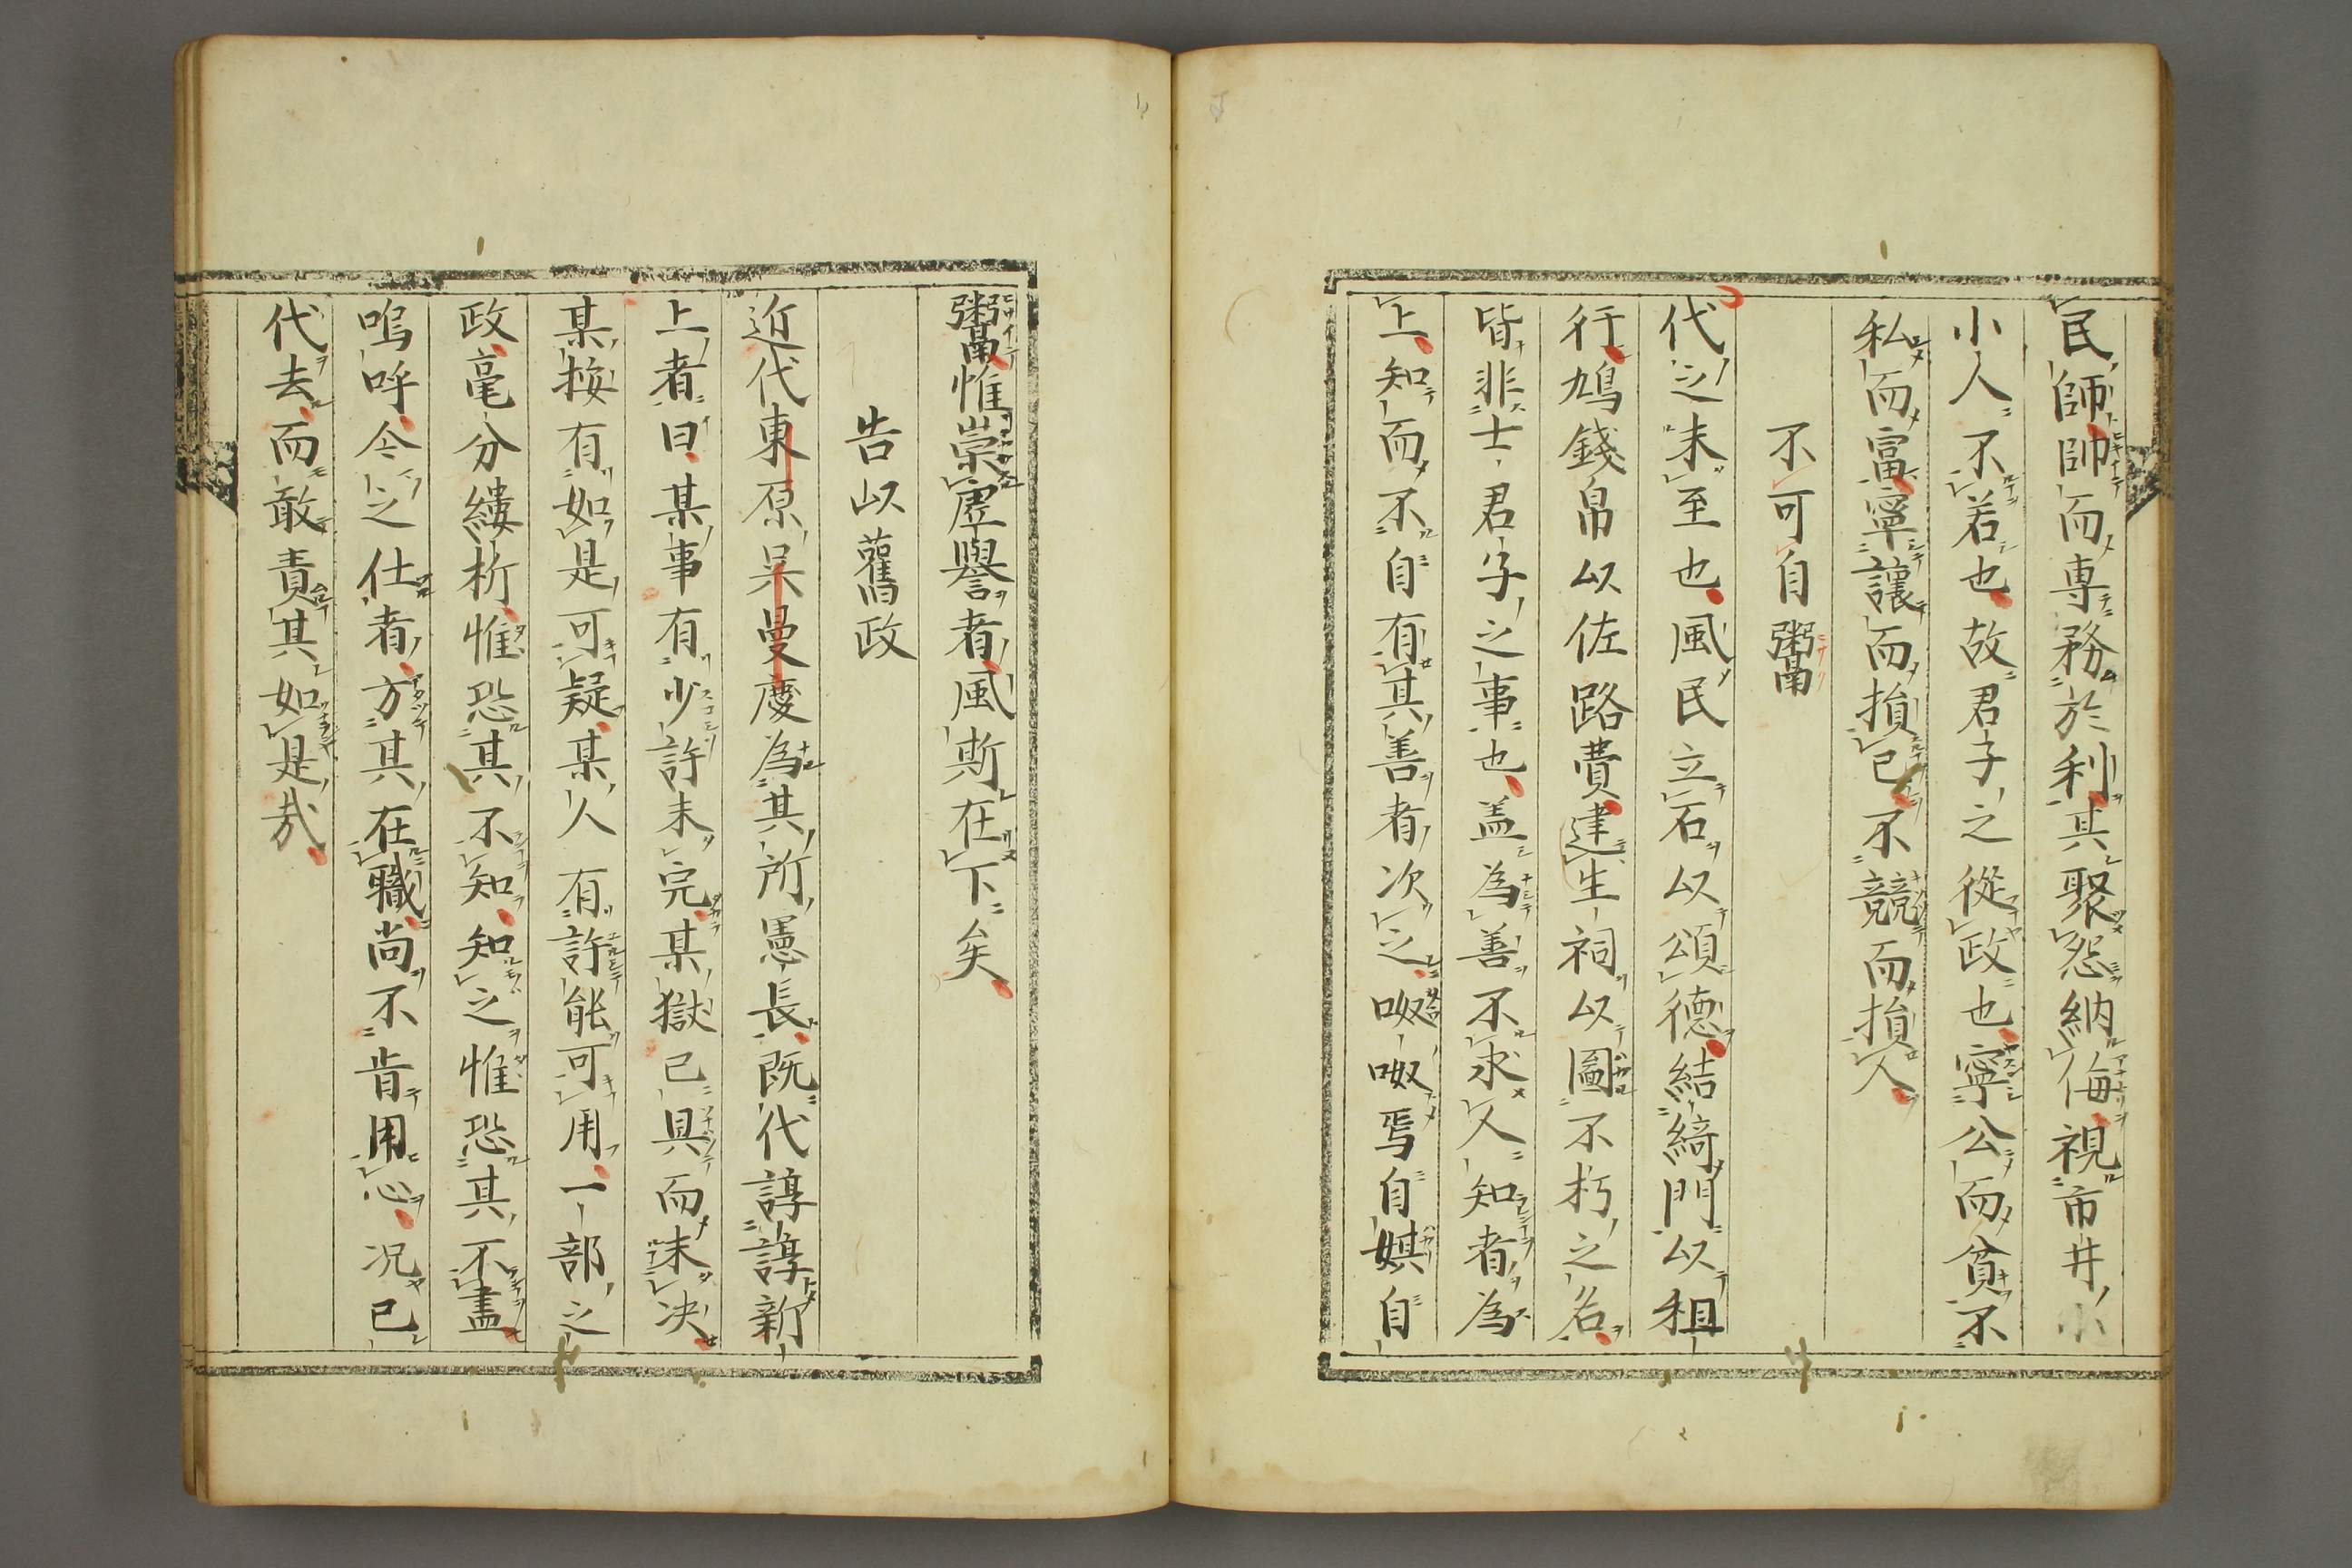 民師帥而専務於利其聚怨納侮視市井小
小人不若也故君子之從政也寧公而貧不
私而富寧讓而損已不競而損人
不可自鬻
代之未至也風民立石以頌德結綺門以租
行鳩錢帛以佐路費建生祠以圖不朽之名
皆非士君子之事也盖為善不求人知者為
上知而不自有其善者次之呶呶焉自媒自
鬻惟崇虚譽者風斯在下矣
告以舊政
近代東原呆曼慶為其所憲長既代諄諄新
上者曰某事有少許未完某獄已具而未决
某按有如是可疑某人有許能可用一部之
政毫分縷析惟恐其不知知之惟恐其不盡
嗚呼今之仕者方其在職尚不肯用心况已
代去而敢責其如是哉